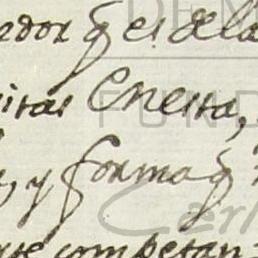 ador q̃ es dela
itas en esta,
, y forma q̃
que competan